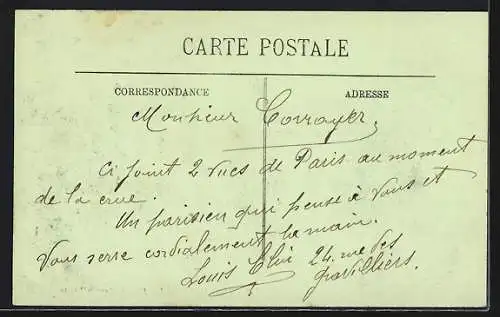 CARTE POSTALE
CORRESPONDANCE
ADRESSE
Monsieur Corrayer,
Ci joint 2 vues de Paris au moment
de la crue.
Un parisien qui pense à vous et
vous serre cordialement la main.
Louis 24, rue des
Gravilliers.